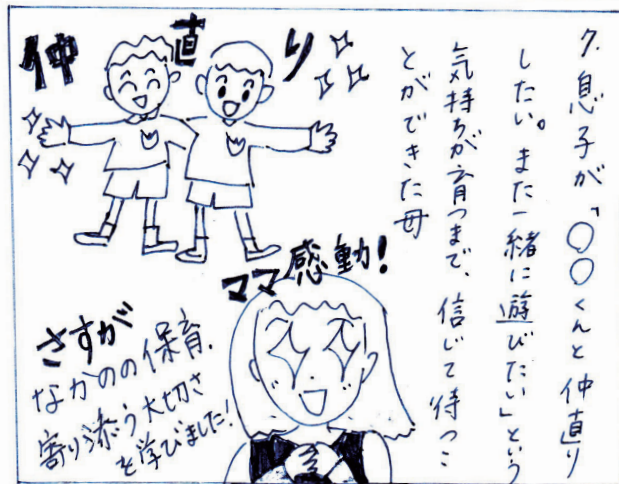 7. 息子が「〇〇くんと仲直り
したい。また一緒に遊びたい」という
気持ちが育つまで、信じて待つこ
とができた母
仲直り
ママ感動!
さすが
なかのの保育.
寄り添う大切さ
を学びました!